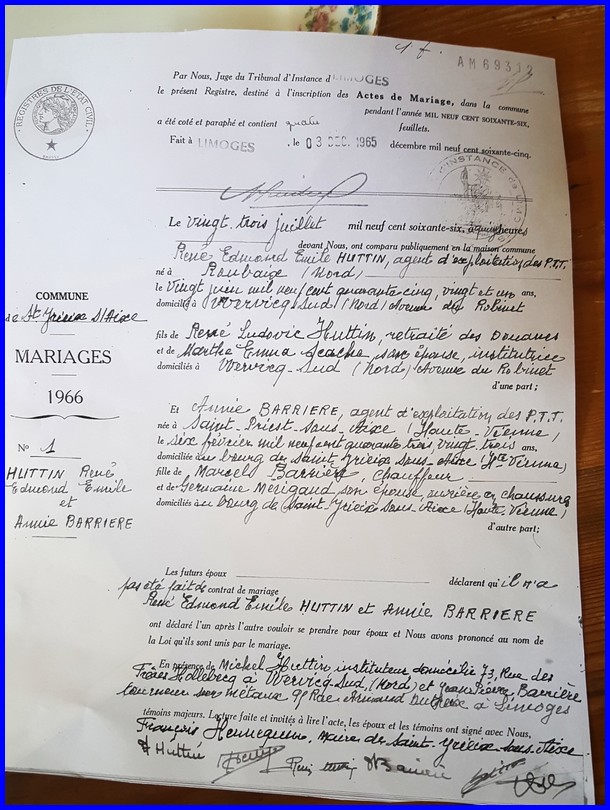 AM68313
Par Nous, Juge du Tribunal d'Instance d LIMOGES
le présent Registre, destiné à l'inscription des Actes de Mariage, dans la commune
pendant l'année MIL NEUF CENT SOIXANTE-SIX,
a été coté et paraphé et contient quatre feuillets.
Fait à LIMOGES, le 03 DEC. 1965 décembre mil neuf cent soixante-cinq.
REGISTRES DE L'ETAT CIVIL
INSTANCE de LIMO
Le vingt-trois juillet mil neuf cent soixante-six, à quinze heures
devant Nous, ont comparu publiquement en la maison commune
René Edmond Emile HUTTIN, agent d'exploitation des P.T.T.
né à Roubaix (Nord)
le vingt juin mil neuf cent quarante-cinq, vingt et un ans,
domicilié à Wervicq-Sud (Nord) Avenue du Robinet
fils de René Ludovic Huttin, retraité des Douanes
et de Marthe Emma son épouse, institutrice
domiciliés à Wervicq-Sud (Nord) Avenue du Robinet
d'une part;
COMMUNE
de St Yrieix S/Aixe
MARIAGES
1966
N° 1
HUTTIN René
Edmond Emile
et
Annie BARRIERE
Et Annie BARRIERE, agent d'exploitation des P.T.T.
née à Saint-Priest-sous-Aixe (Haute-Vienne)
le six février mil neuf cent quarante trois, vingt trois ans,
domiciliée au bourg de Saint-Yrieix-sous-Aixe (Hte Vienne)
fille de Marcel Barrière, chauffeur
et de Germaine Mérigaud son épouse, ouvrière en chaussures
domiciliés au bourg de Saint-Yrieix-sous-Aixe (Haute-Vienne)
d'autre part;
Les futurs époux déclarent qu'il n'a
pas été fait de contrat de mariage
René Edmond Emile HUTTIN et Annie BARRIERE
ont déclaré l'un après l'autre vouloir se prendre pour époux et Nous avons prononcé au nom de
la Loi qu'ils sont unis par le mariage.
En présence de Michel Huttin instituteur domicilié 73, Rue des
Frères à Wervicq-Sud (Nord) et Jean Pierre Barrière
tourneur sur métaux Rue Armand Dutreix à Limoges
témoins majeurs. Lecture faite et invités à lire l'acte, les époux et les témoins ont signé avec Nous,
François Hennequin, maire de Saint-Yrieix-sous-Aixe
Huttin